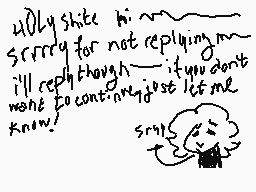 HOLy shite hi
srrrry for not replying
i'll reply though if you don't
want to continue, just let me
know!
srry